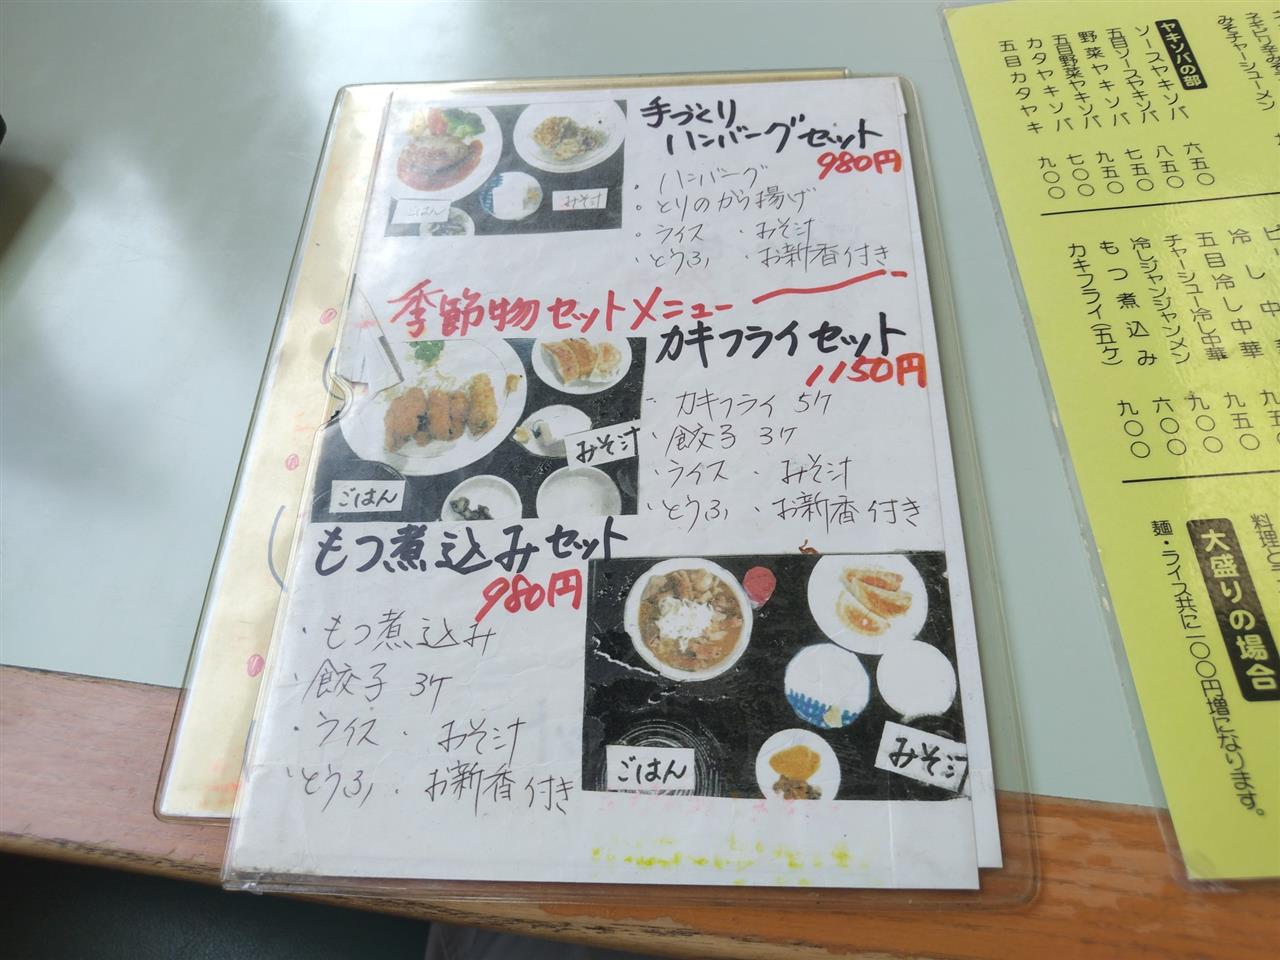 手づくり
ハンバーグセット
980円
・ハンバーグ
・とりのから揚げ
・ライス ・みそ汁
・とうふ ・お新香付き
ごはん
みそ汁
季節物セットメニュー
カキフライセット
1150円
・カキフライ 5ケ
・餃子 3ケ
・ライス ・みそ汁
・とうふ ・お新香付き
みそ汁
ごはん
もつ煮込みセット
980円
・もつ煮込み
・餃子 3ケ
・ライス ・みそ汁
・とうふ ・お新香付き
ごはん
みそ汁
ネギピリ辛みそ
みそチャーシューメン
ヤキソバの部
ソースヤキソバ 六五〇
五目ソースヤキソバ 八五〇
野菜ヤキソバ 七五〇
五目野菜ヤキソバ 九五〇
カタヤキソバ 七〇〇
五目カタヤキ 九〇〇
冷し中華
五目冷し中華 九五
チャーシュー冷し中華 九五〇
冷しジャンジャンメン 九〇〇
もつ煮込み 六〇〇
カキフライ(五ケ) 九〇〇
大盛りの場合
料理
麺・ライス共に一〇〇円増になります。